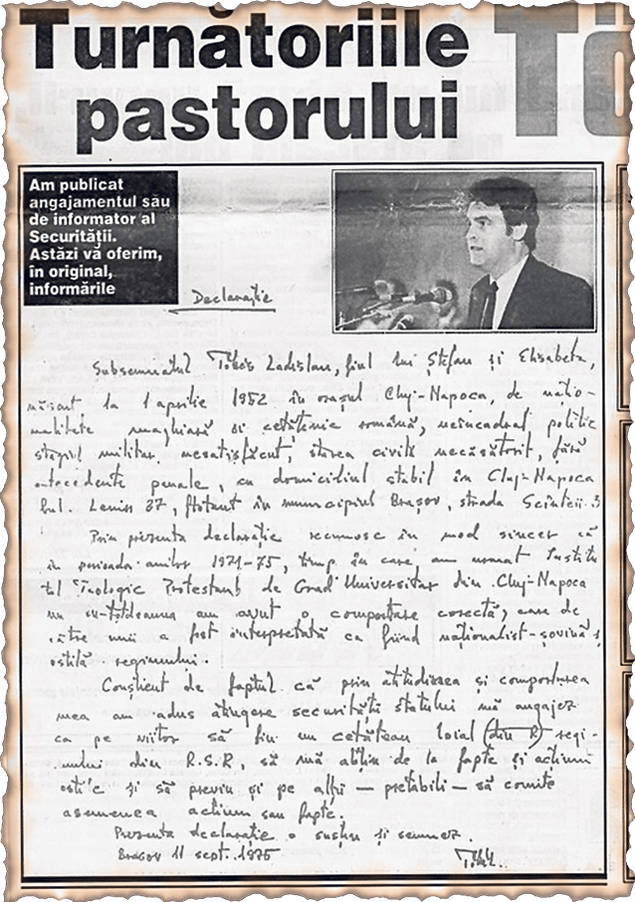 Turnătoriile
pastorului
Tö
Am publicat
angajamentul său
de informator al
Securității.
Astăzi vă oferim,
în original,
informările
Declarație
Subsemnatul Tökés Ladislau, fiul lui Ștefan și Elisabeta,
născut la 1 aprilie 1952 în orașul Cluj-Napoca, de națio-
nalitate maghiară și cetățenie română, neîncadrat politic
stagiul militar nesatisfăcut, starea civilă necăsătorit, fără
antecedente penale, cu domiciliul stabil în Cluj-Napoca
bul. Lenin 37, flotant în municipiul Brașov, strada Scînteii 3
Prin prezenta declarație recunosc în mod sincer că
în perioada anilor 1971-75, timp în care am urmat Institu
tul Teologic Protestant de Grad Universitar din Cluj-Napoca
nu întotdeauna am avut o comportare corectă, care de
către unii a fost interpretată ca fiind naționalist-șovină,
ostilă regimului.
Conștient de faptul că prin atitudinea și comportarea
mea am adus atingere securității statului mă angajez
ca pe viitor să fiu un cetățean loial (din R) regi-
mului din R.S.R, să mă abțin de la fapte și acțiuni
ostile și să previn și pe alții — pretabili — să comite
asemenea acțiuni sau fapte.
Prezenta declarație o susțin și semnez.
Brașov 11 sept. 1975